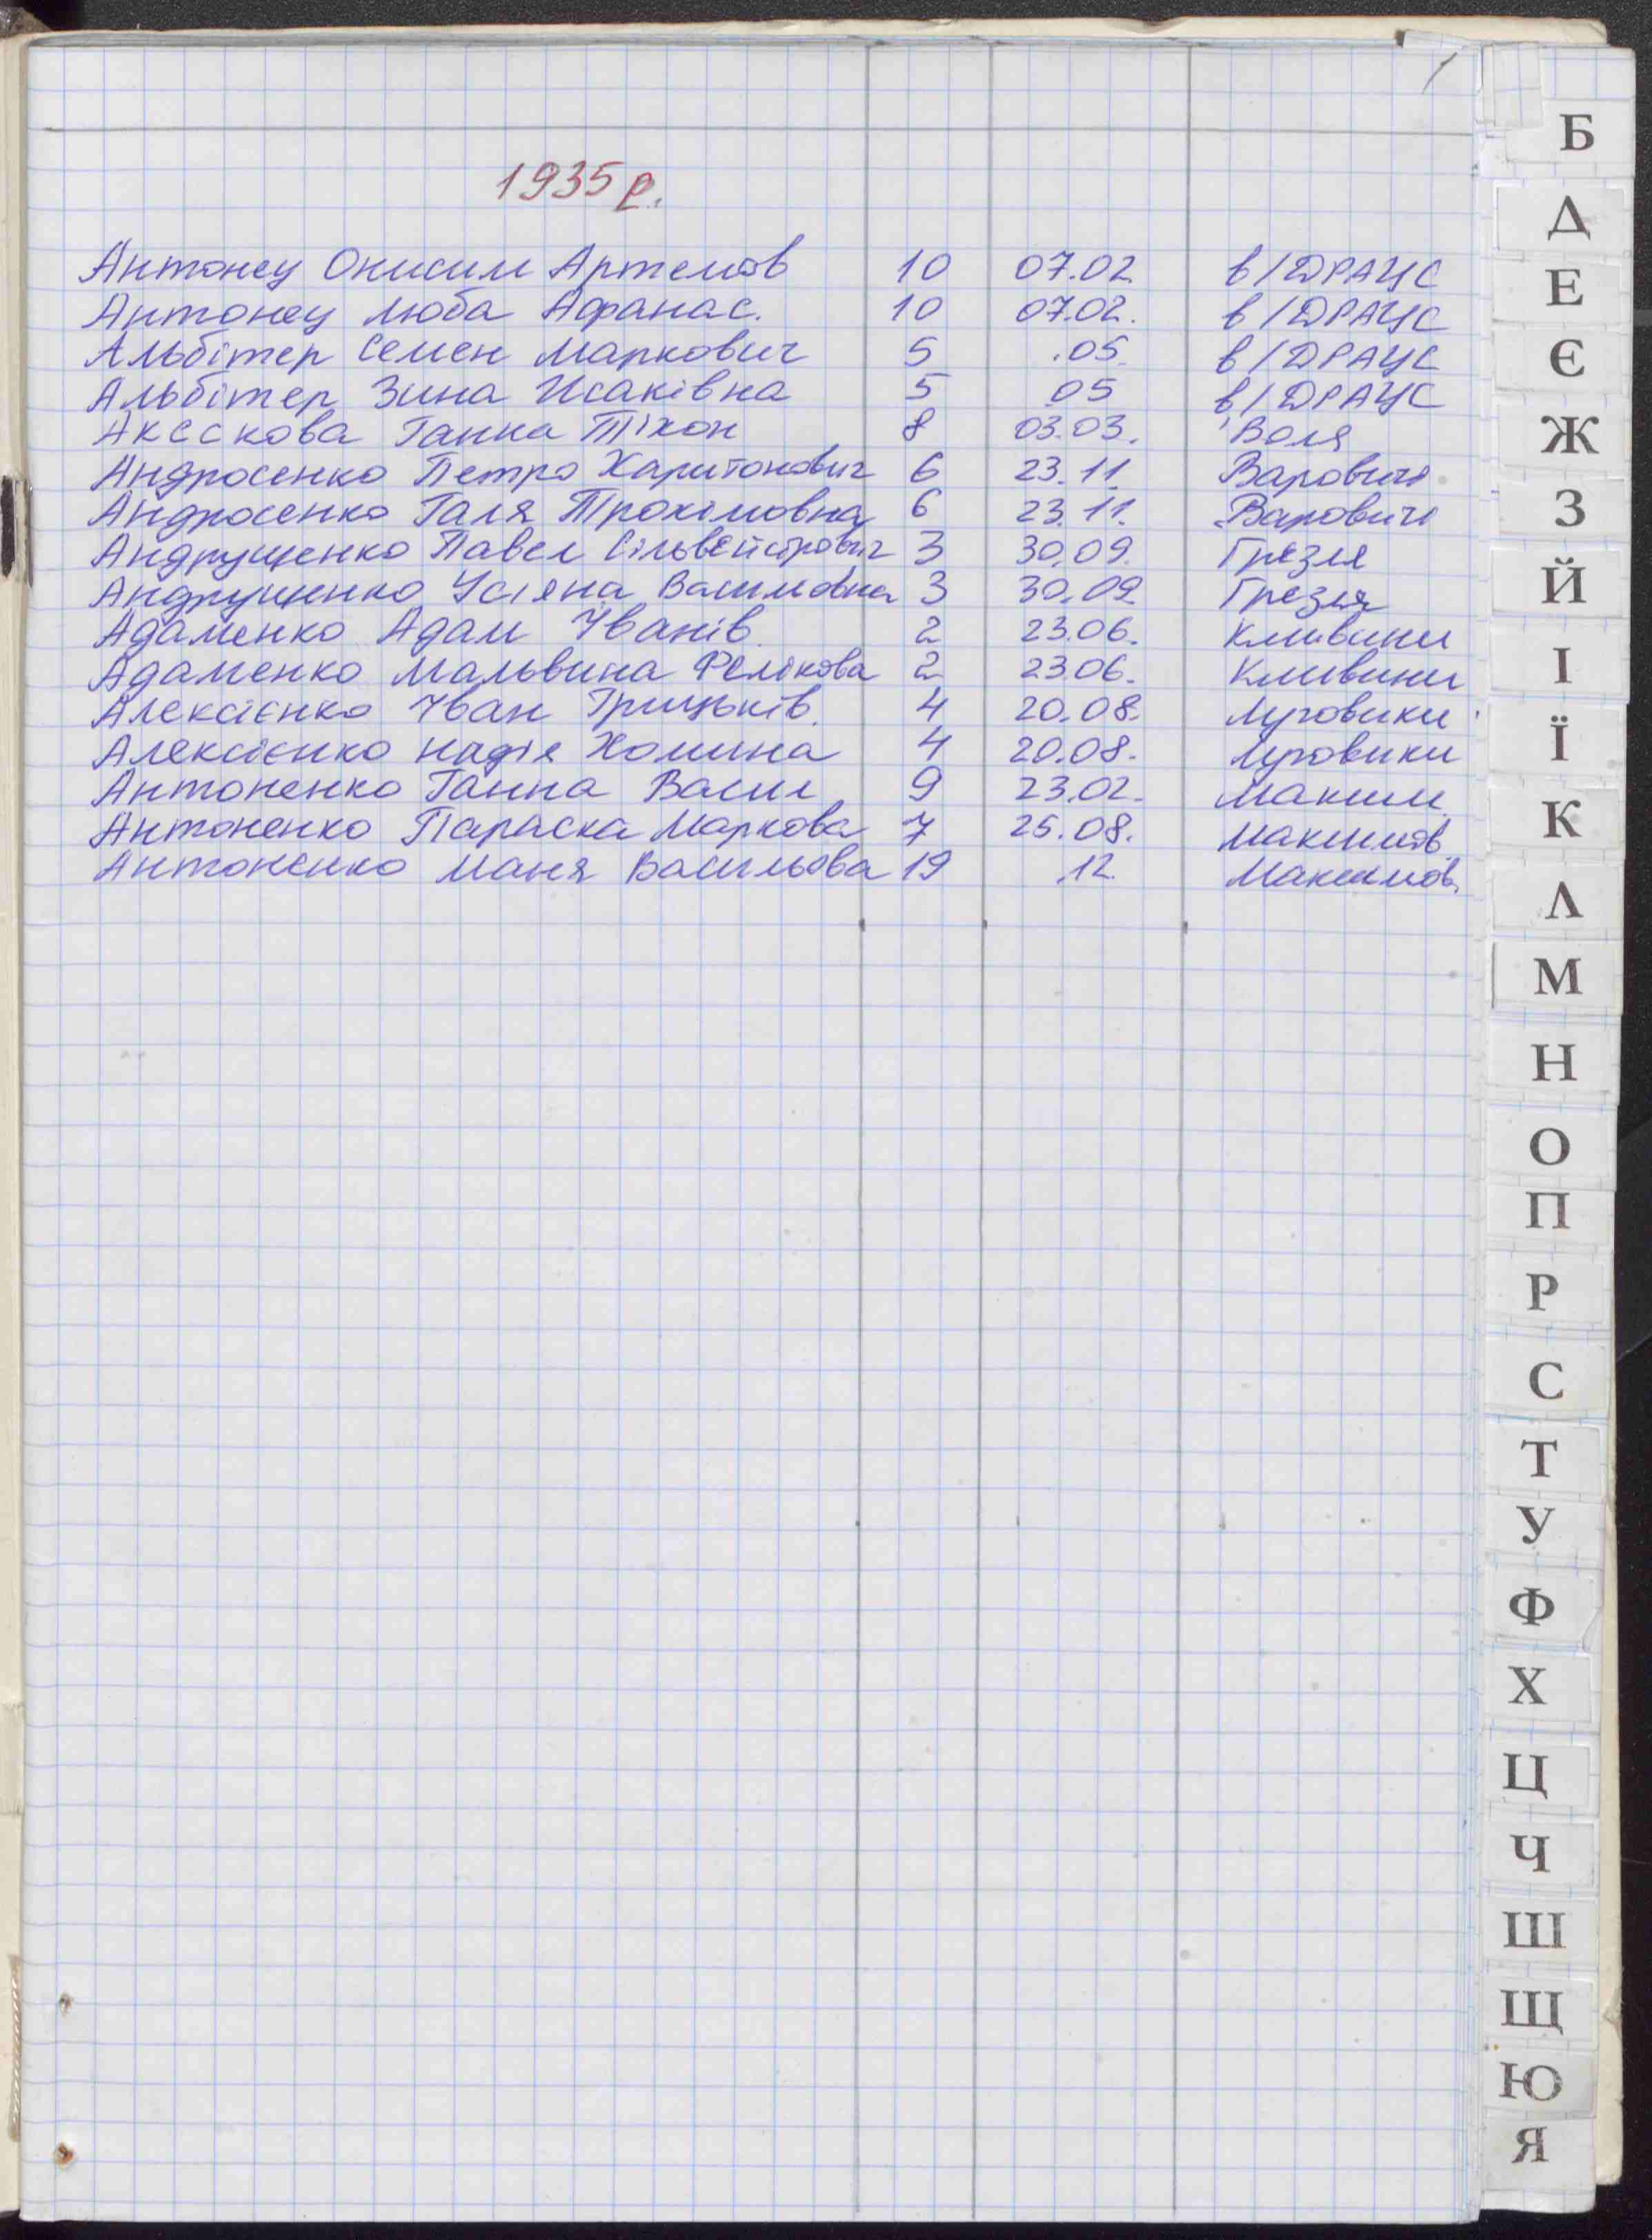 1
1935 р.
Антонец Онисим Артемов 10 07.02 в/ДРАЦС
Антонец Люба Афанас. 10 07.02. в/ДРАЦС
Альбітер Семен Маркович 5 .05. в/ДРАЦС
Альбітер Зина Исаківна 5 05 в/ДРАЦС
Аксскова Ганна Тіхон 8 03.03. Воля
Андросенко Петро Харитонович 6 23.11. Варовичі
Андросенко Галя Трохімовна 6 23.11. Варовичі
Андрущенко Павел Сільвейстрович 3 30.09. Грезля
Андрущенко Усіяна Василовна 3 30.09. Грезля
Адаменко Адам Іванів 2 23.06. Кливини
Адаменко Мальвина Фелікова 2 23.06. Кливини
Алексієнко Іван Грицьків. 4 20.08. Луговики
Алексієнко Надія Хомина 4 20.08. Луговики
Антоненко Ганна Васил 9 23.02. Максим
Антоненко Параска Маркова 7 25.08. Максимов
Антоненко Маня Васильова 19 .12. Максимов.
Б
Д
Е
Є
Ж
З
Й
І
Ї
К
Л
М
Н
О
П
Р
С
Т
У
Ф
Х
Ц
Ч
Ш
Щ
Ю
Я